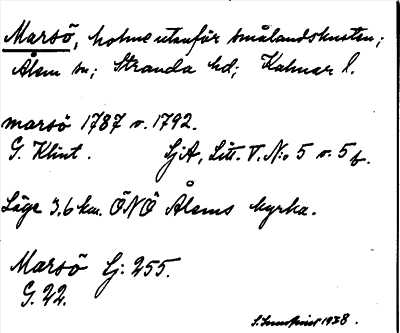 Marsö, holme utanför smålandskusten;
Ålem sn; Stranda hd; Kalmar l.
marsö 1787 o. 1792.
G. Klint. SjA, Litt. V. N:o 5 o. 5 b.
Läge 3.6 km. ÖNÖ Ålems kyrka.
Marsö Gj: 255.
G. 22.
1938.